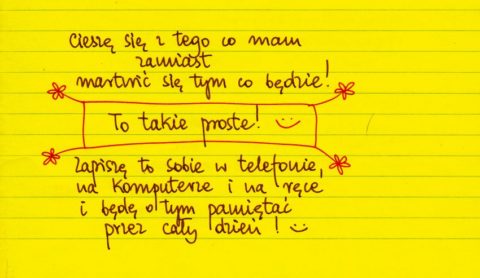 Cieszę się z tego co mam
zamiast
martwić się tym co będzie!
To takie proste! :)
Zapiszę to sobie w telefonie,
na komputerze i na ręce
i będę o tym pamiętać
przez cały dzień! :)